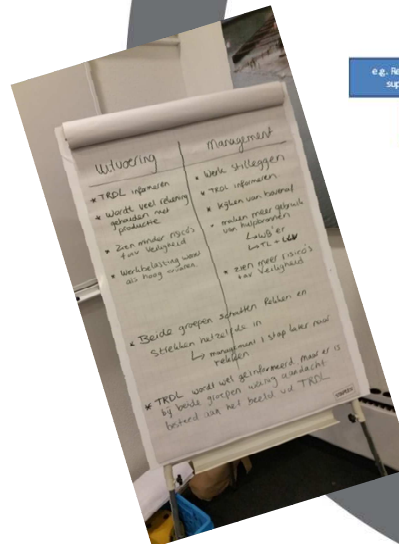 e.g. Re
sup
Uitvoering
* TRDL informeren
* Wordt veel rekening
gehouden met
productie
* Zien minder risico's
tav Veiligheid
* Werkbelasting word
als hoog ervaren
Management
* Werk stilleggen
* TRDL informeren
* kijken van bovenaf
* maken meer gebruik
van hulpbronnen
↳ WB'er
↳ TL +
* zien meer risico's
tav Veiligheid
* Beide groepen schatten Rekken en
Strekken hetzelfde in
↳ management 1 stap later naar
rekken
* TRDL wordt wel geinformeerd maar er is
bij beide groepen weinig aandacht
besteed aan het beeld vd TRDL